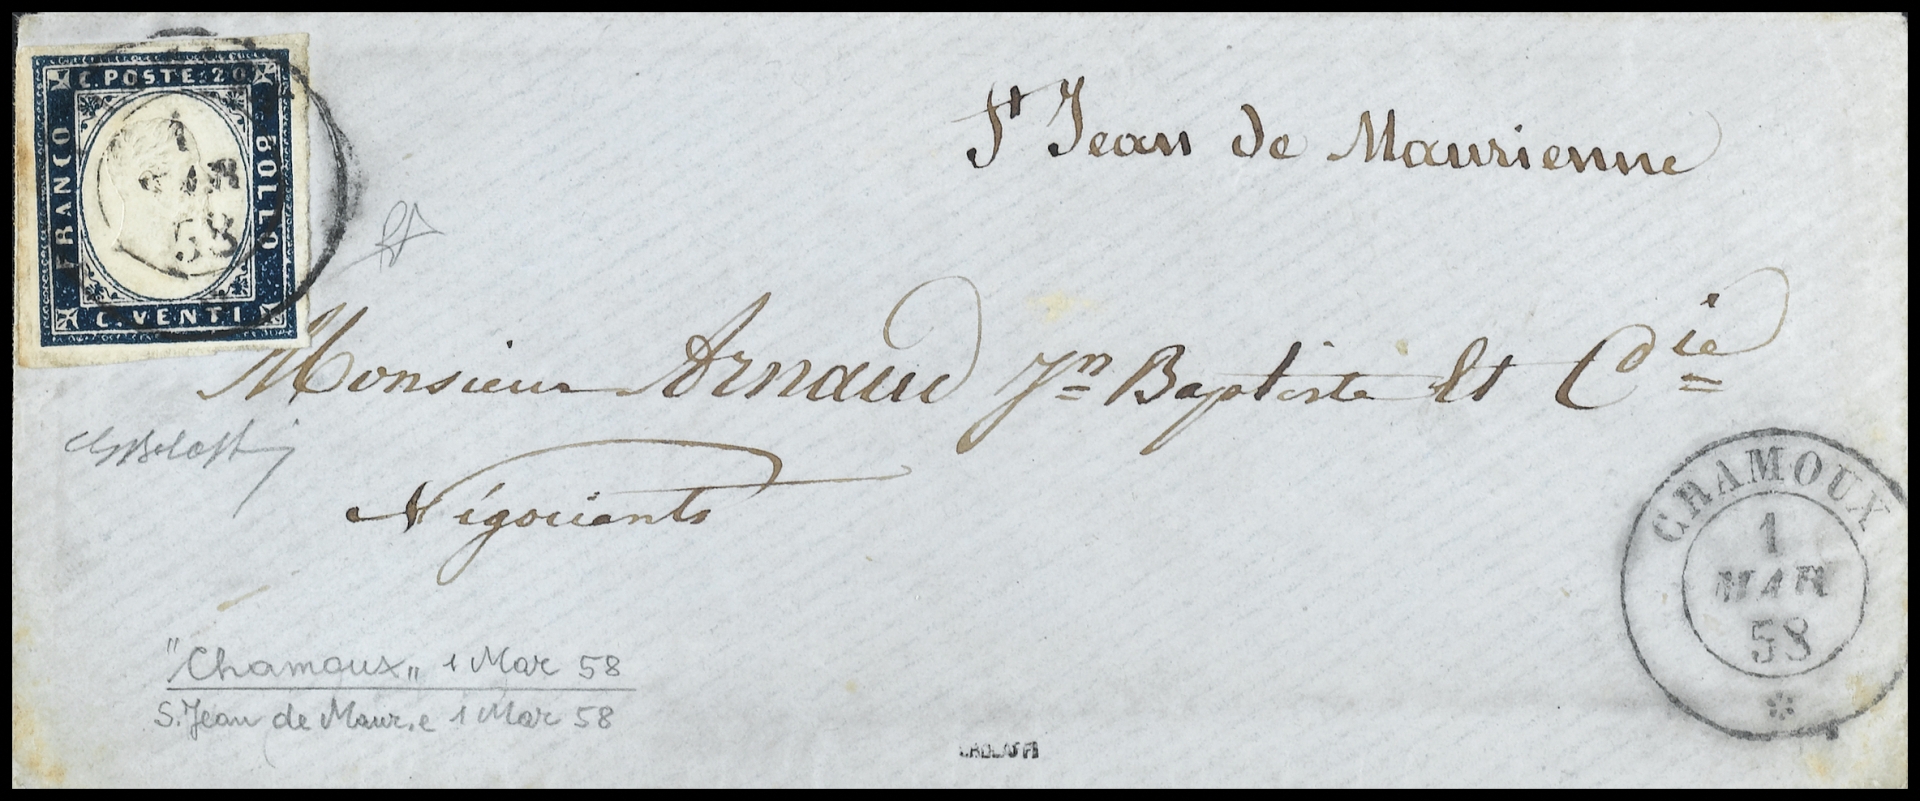 C. POSTE 20
FRANCO
BOLLO
C. VENTI
1
MAR
58
St Jean de Maurienne
Monsieur Arnaud Jn Baptiste et Cie
Négociants
CHAMOUX
1
MAR
58
"Chamoux„ 1 Mar 58
S. Jean de Maur.e 1 Mar 58